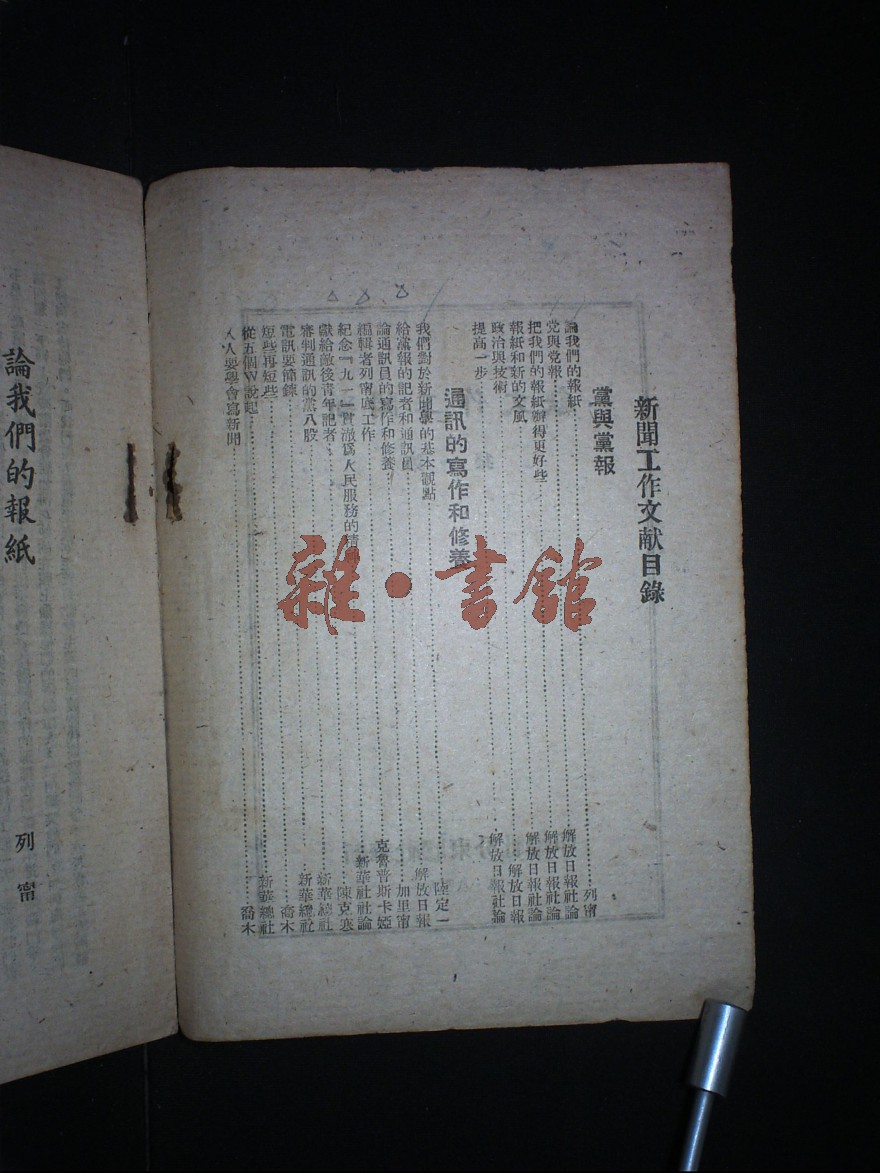 新聞工作文献目錄
黨與黨報
論我們的報紙……列甯
党與党報……解放日報社論
把我們的報紙辦得更好些……解放日報社論
報紙和新的文風……解放日報社論
政治與技術……解放日報
提高一步……解放日報社論
通訊的寫作和修養
我們對於新聞學的基本觀點……陸定一
給黨報的記者和通訊員……解放日報
論通訊員的寫作和修養……加里甯
編輯者列甯底工作……克魯普斯卡婭
紀念『九一』貫澈為人民服務的精……新華社社論
獻給敵後青年記者……陳克寒
審判通訊的黨八股……新華總社
電訊要簡鍊……新華總社
短些再短些……喬木
從五個W說起……新華總社
人人要學會寫新聞……喬木
論我們的報紙
列甯
雜·書館